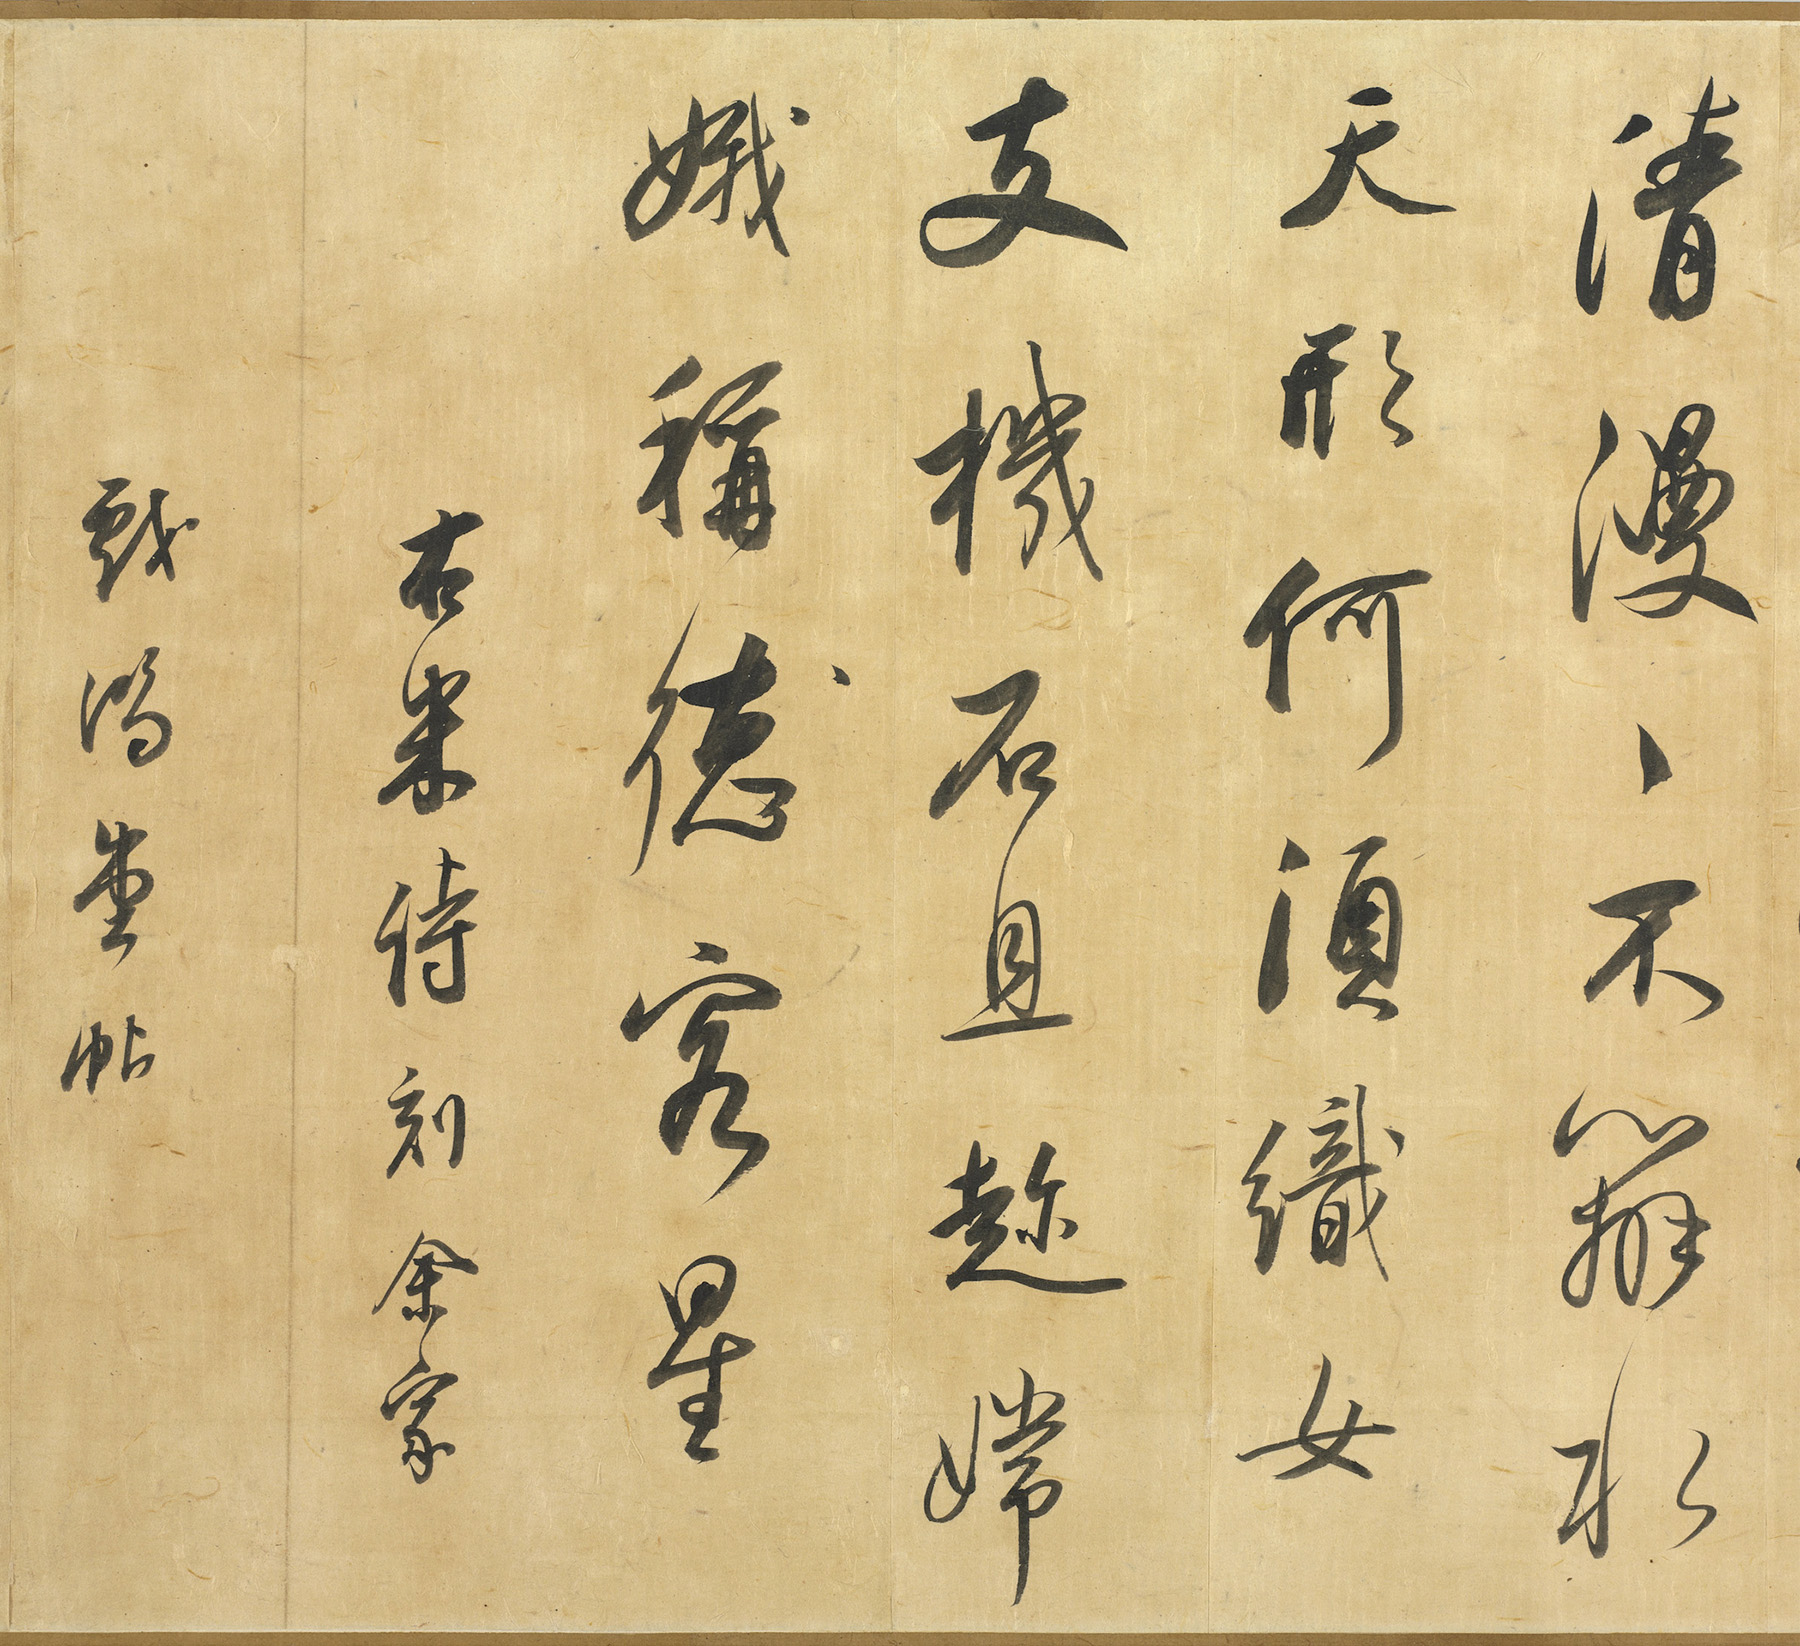 清漫、不辨水
天形何須織女
支機石且趁嫦
娥稱德客星
右米待刻余家
戲鴻堂帖